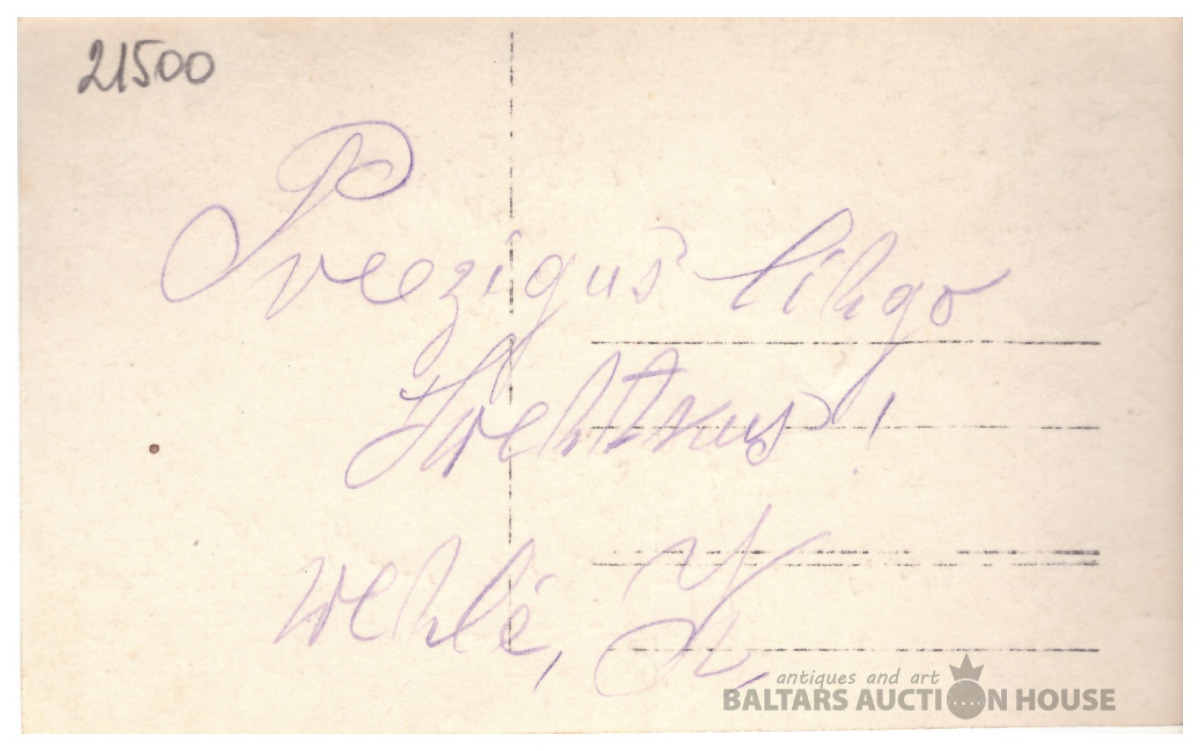 21500
Preezigus lihgo
Swehtkus!
wehlé,
antiques and art
BALTARS AUCTION HOUSE